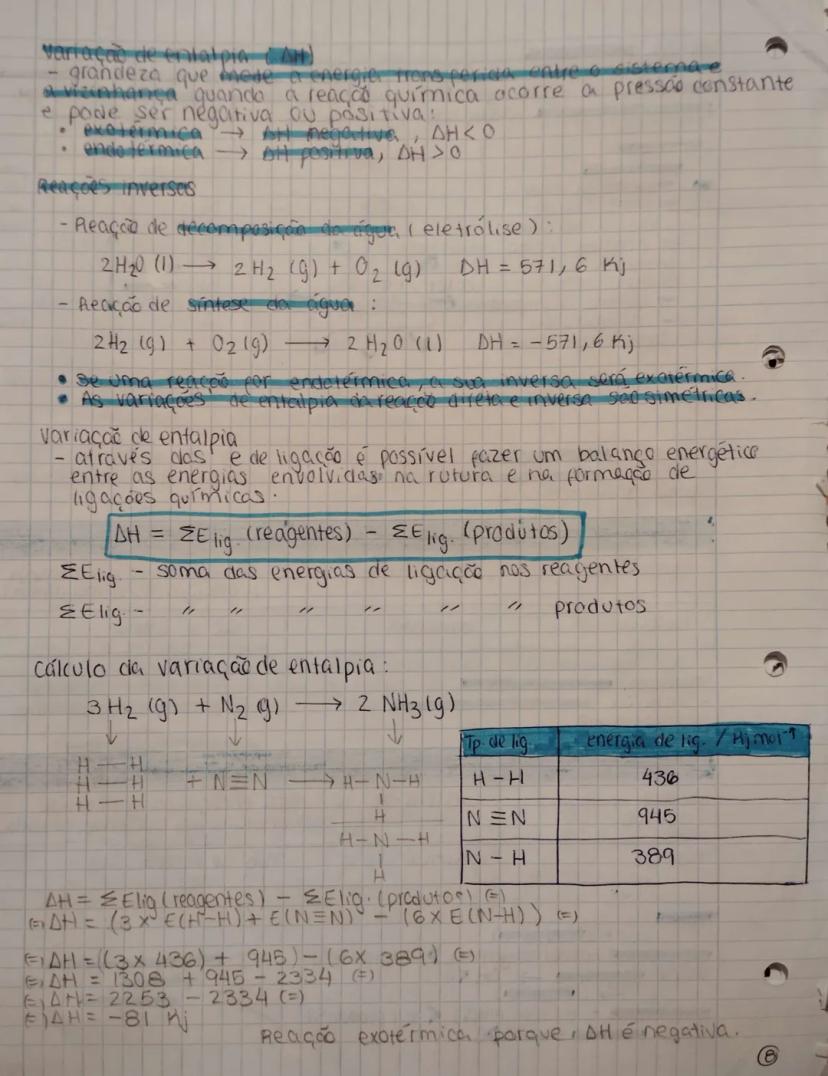 Variação de entalpia (ΔH)
- grandeza que mede a energia transferida entre o sistema e
a vizinhança quando a reação química ocorre a pressão constante
e pode ser negativa ou positiva:
• exotérmica → ΔH negativa, ΔH < 0
• endotérmica → ΔH positiva, ΔH > 0
Reações inversas
- Reação de decomposição da água (eletrólise):
2H2O (l) → 2H2 (g) + O2 (g) DH = 571,6 Kj
- Reação de síntese da água:
2H2 (g) + O2 (g) → 2 H2O (l) DH = -571,6 Kj
• Se uma reação for endotérmica, a sua inversa será exotérmica.
• As variações de entalpia da reação direta e inversa são simétricas.
Variação de entalpia
- através das e de ligação é possível fazer um balanço energético
entre as energias envolvidas na rotura e na formação de
ligações químicas.
ΔH = ΣElig. (reagentes) - ΣElig. (produtos)
ΣElig. - soma das energias de ligação nos reagentes
ΣElig. - " " " " " " produtos
Cálculo da variação de entalpia:
3H2 (g) + N2 (g) → 2 NH3 (g)
↓ ↓ ↓
H — H
H — H + N≡N → H-N-H
H — H
H
H-N-H
H
Tp. de lig. energia de lig. / Kj mol-1
H-H 436
N≡N 945
N-H 389
ΔH = ΣElig (reagentes) - ΣElig. (produtos) (=)
(=) ΔH = (3 x E(H-H) + E(N≡N)) - (6 x E(N-H)) (=)
(=) ΔH = ((3 x 436) + 945) - (6 x 389) (=)
(=) ΔH = 1308 + 945 - 2334 (=)
(=) ΔH = 2253 - 2334 (=)
(=) ΔH = -81 Kj
Reação exotérmica porque, ΔH é negativa.
8